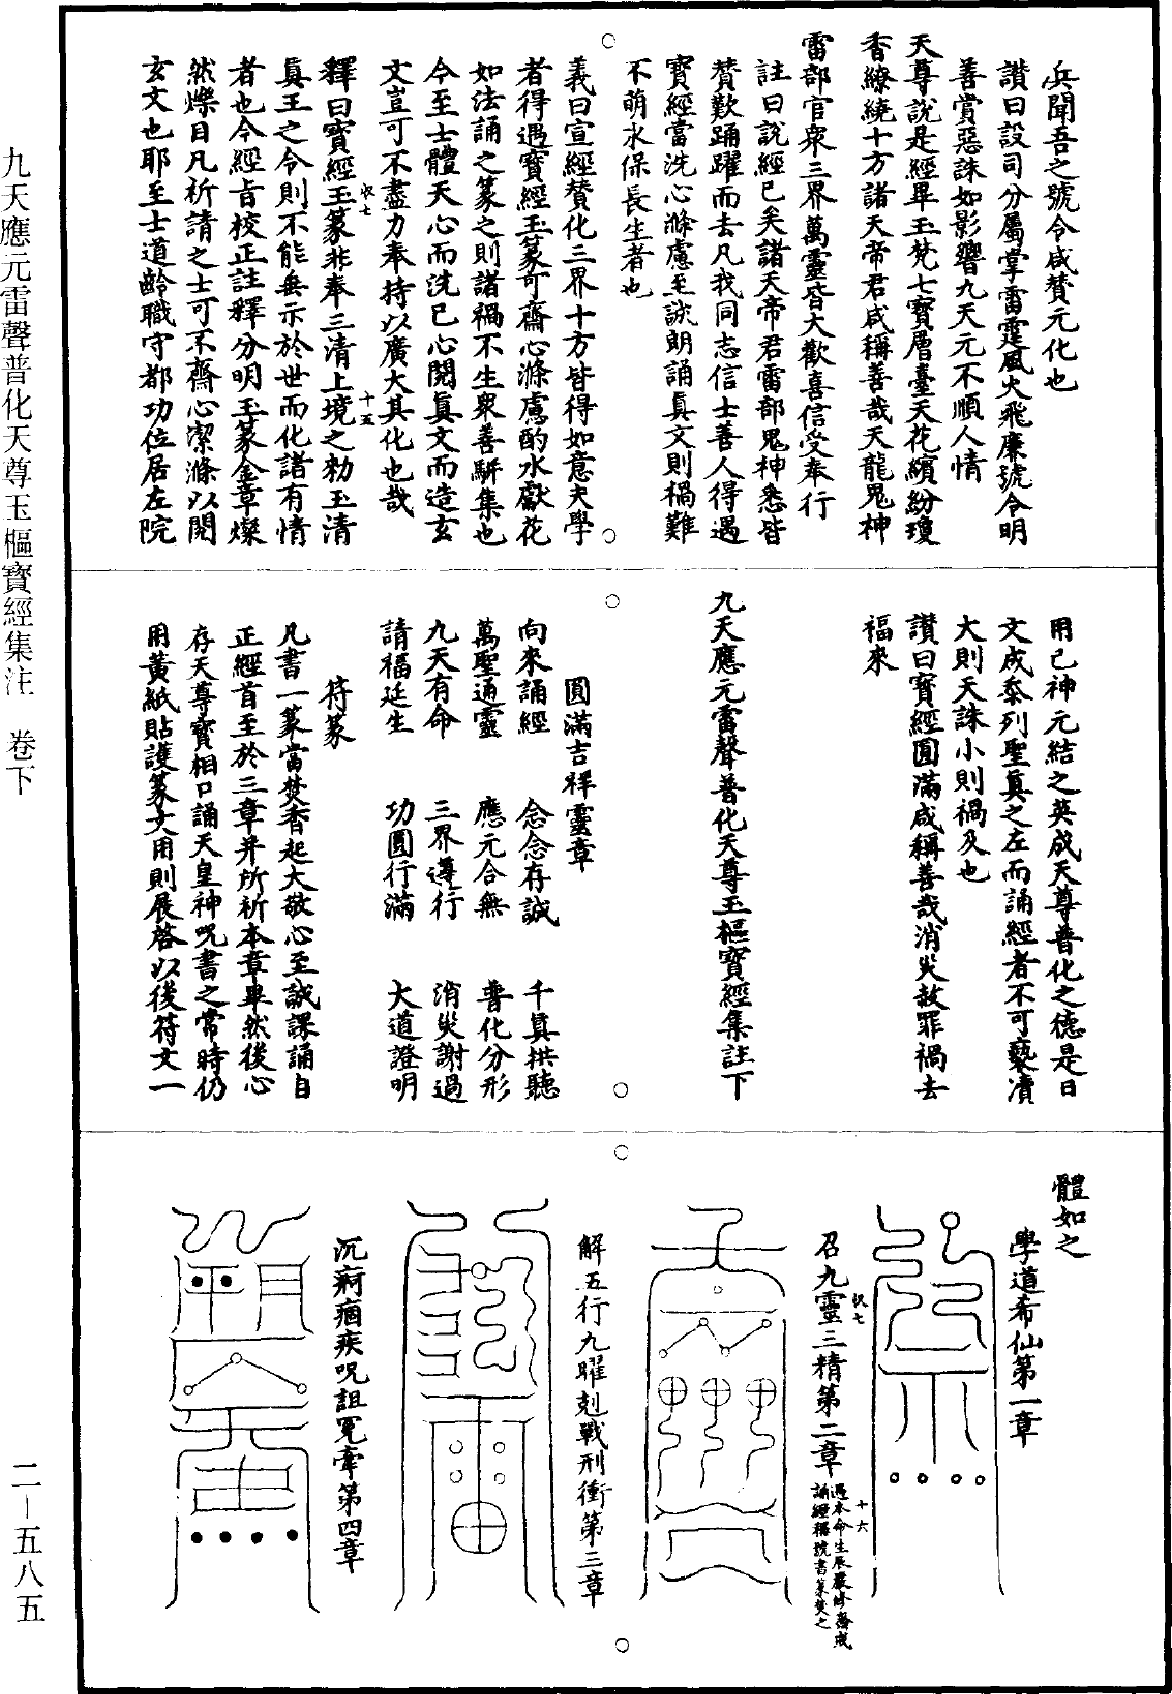 兵聞吾之號令咸贊元化也
讚曰設司分屬掌雷霆風火飛廉號令明
善賞惡誅如影響九天元不順人情
天尊說是經畢玉梵七寶層臺天花繽紛瓊
香繚繞十方諸天帝君咸稱善哉天龍鬼神
雷部官衆三界萬靈皆大歡喜信受奉行
註曰說經已矣諸天帝君雷部鬼神悉皆
贊歎踊躍而去凡我同志信士善人得遇
寶經當洗心滌慮至誠朗誦真文則禍難
不萌永保長生者也
義曰宣經贊化三界十方皆得如意夫學
者得遇寶經玉篆可齋心滌慮酌水獻花
如法誦之篆之則諸禍不生衆善駢集也
今至士體天心而洗已心閱真文而造玄
文豈可不盡力奉持以廣大其化也哉
釋曰寶經玉篆非奉三清上境之勑玉清
真王之令則不能垂示於世而化諸有情
者也今經旨校正註釋分明玉篆金章燦
然爍目凡祈請之士可不齋心潔滌以閱
玄文也耶至士道齡職守都功位居左院
用己神元結之英成天尊普化之德是日
文成忝列聖真之左而誦經者不可褻瀆
大則天誅小則禍及也
讚曰寶經圓滿咸稱善哉消災赦罪禍去
福來
九天應元雷聲普化天尊玉樞寶經集註下
圓滿吉祥靈章
向來誦經 念念存誠 千真拱聽
萬聖通靈 應元合無 普化分形
九天有命 三界遵行 消災謝過
請福延生 功圓行滿 大道證明
符篆
凡書一篆當焚香起大敬心至誠課誦自
正經首至於三章并所祈本章畢然後心
存天尊寶相口誦天皇神呪書之常時仍
用黃紙貼護篆文用則展啓以後符文一
體如之
學道希仙第一章
召九靈三精第二章
遇本命生辰嚴修齋戒
誦經稱號書篆焚之
解五行九曜剋戰刑衝第三章
沉痾痼疾呪詛冤牽第四章
十五
十六
九天應元雷聲普化天尊玉樞寶經集注 卷下
二—五八五